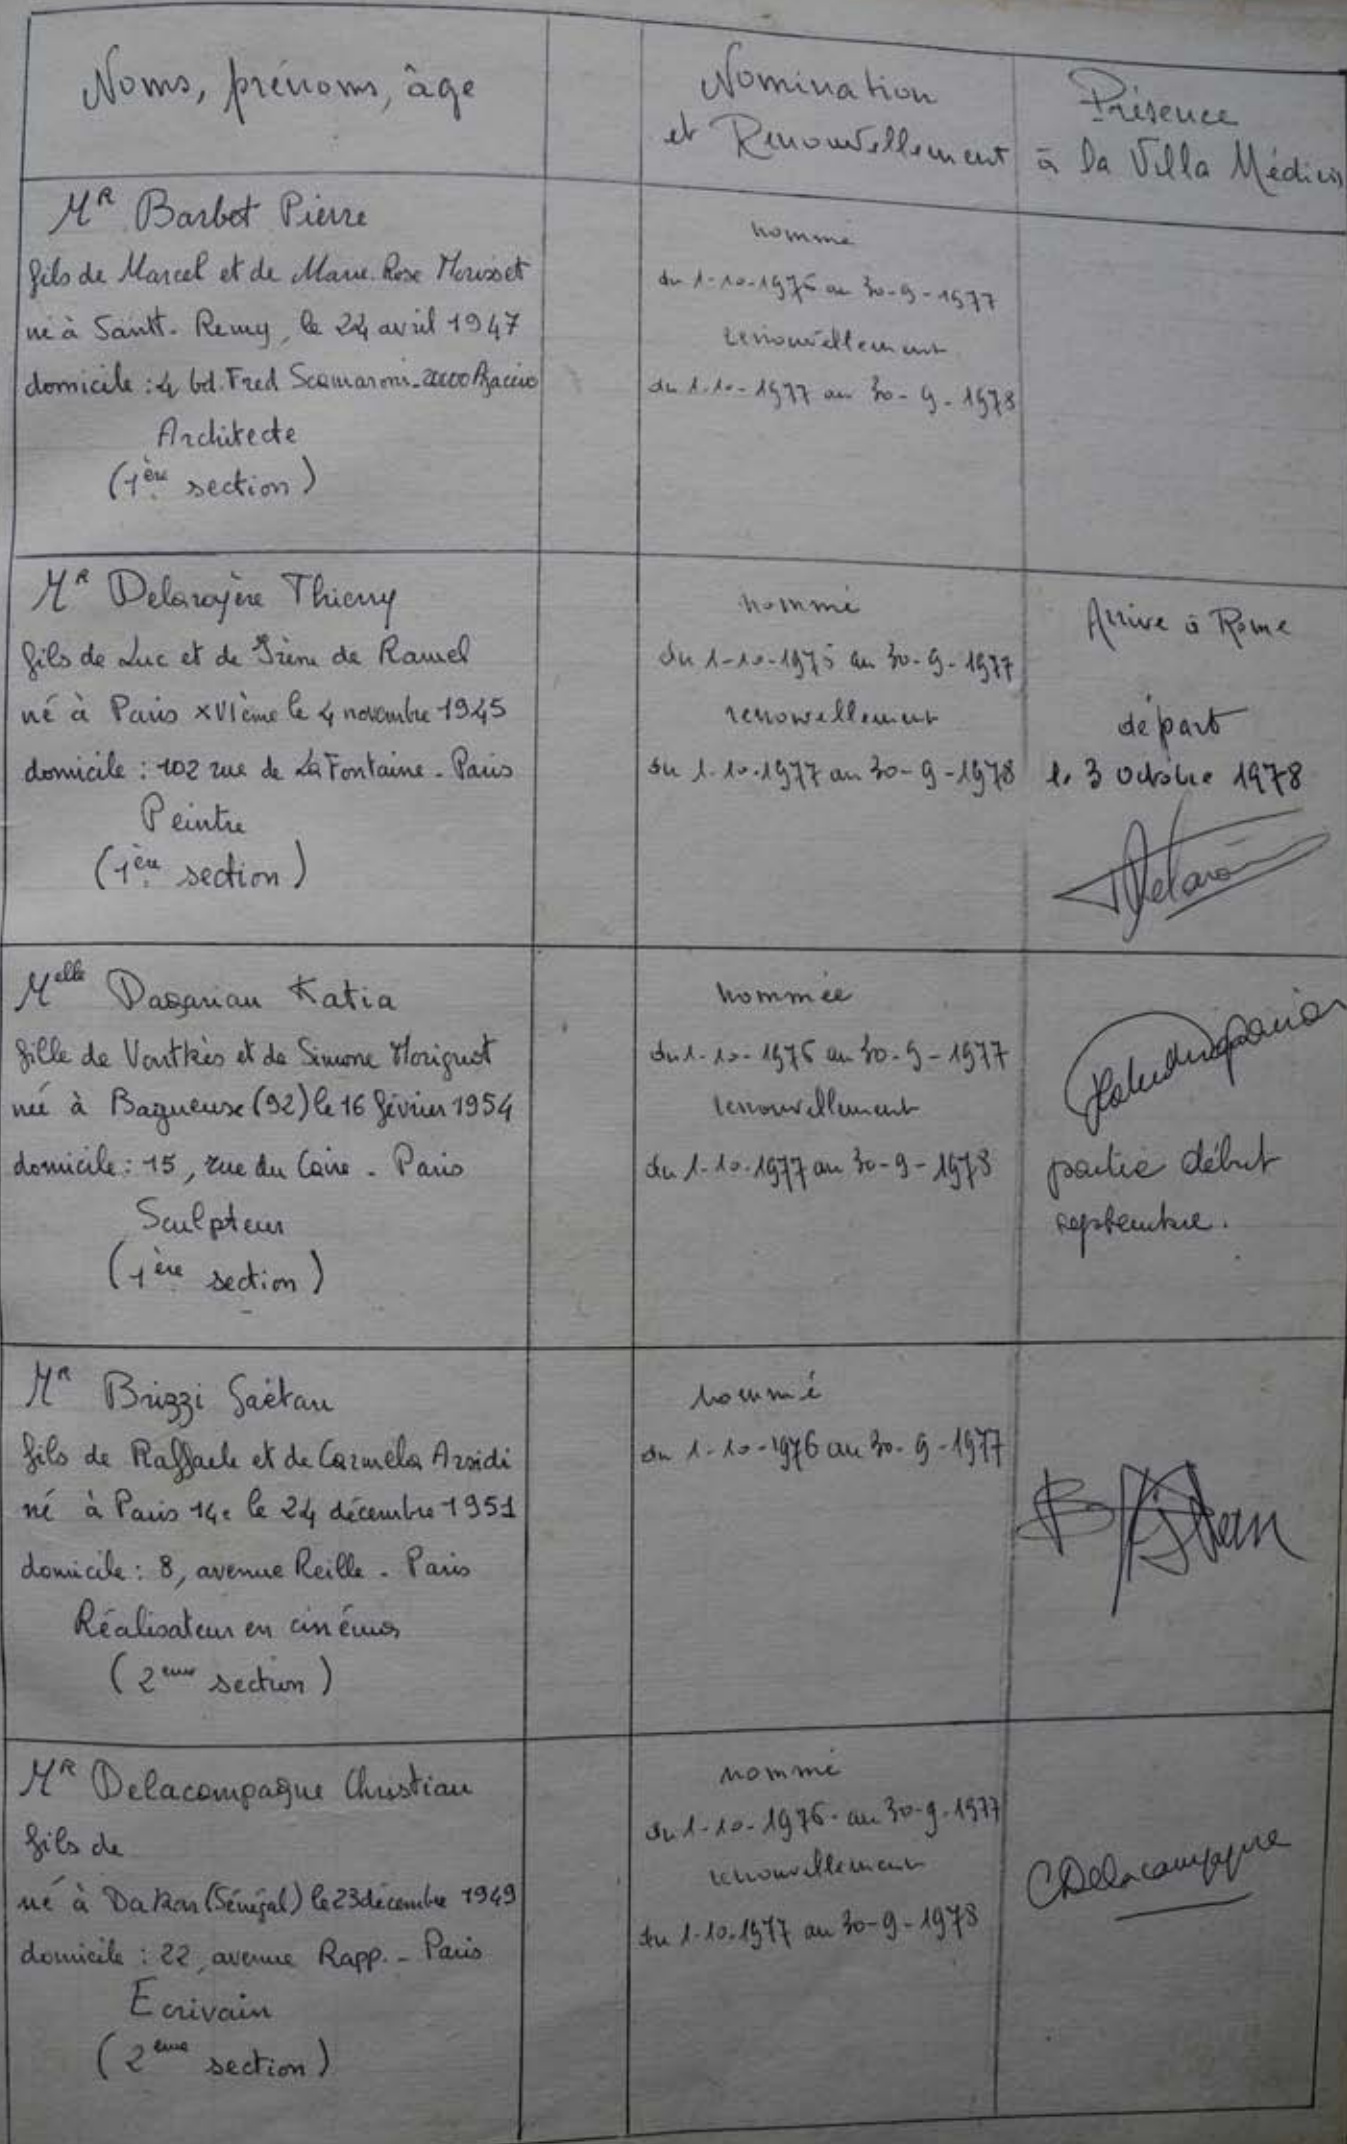 Noms, prénoms, âge
Nomination
et Renouvellement
Présence
à la Villa Médicis
Mᴿ Barbot Pierre
fils de Marcel et de Marie-Rose Morisset
né à Saint-Remy, le 24 avril 1947
domicile : 4 bd. Fred Scamaroni - 20000 Ajaccio
Architecte
(1ère section)
nommé
du 1-10-1976 au 30-9-1977
renouvellement
du 1-10-1977 au 30-9-1978
Mᴿ Delaroyère Thierry
fils de Luc et de Irène de Ramel
né à Paris XVIème le 4 novembre 1945
domicile : 102 rue de La Fontaine - Paris
Peintre
(1ère section)
nommé
du 1-10-1976 au 30-9-1977
renouvellement
du 1-10-1977 au 30-9-1978
Arrive à Rome
départ
le 3 octobre 1978
Melle Katia
fille de et de Simone
née à (92) le 16 février 1954
domicile : 15, rue du Caire - Paris
Sculpteur
(1ère section)
nommée
du 1-10-1976 au 30-9-1977
renouvellement
du 1-10-1977 au 30-9-1978
partie début
septembre.
Mᴿ Brizzi Gaëtan
fils de Raffaele et de Carmela
né à Paris 14e le 24 décembre 1951
domicile : 8, avenue Reille - Paris
Réalisateur en cinéma
(2eme section)
nommé
du 1-10-1976 au 30-9-1977
Mᴿ Delacampagne Christian
fils de
né à Dakar (Sénégal) le 23 décembre 1949
domicile : 22, avenue Rapp. - Paris
Ecrivain
(2eme section)
nommé
du 1-10-1976 au 30-9-1977
renouvellement
du 1-10-1977 au 30-9-1978
CDelacampagne